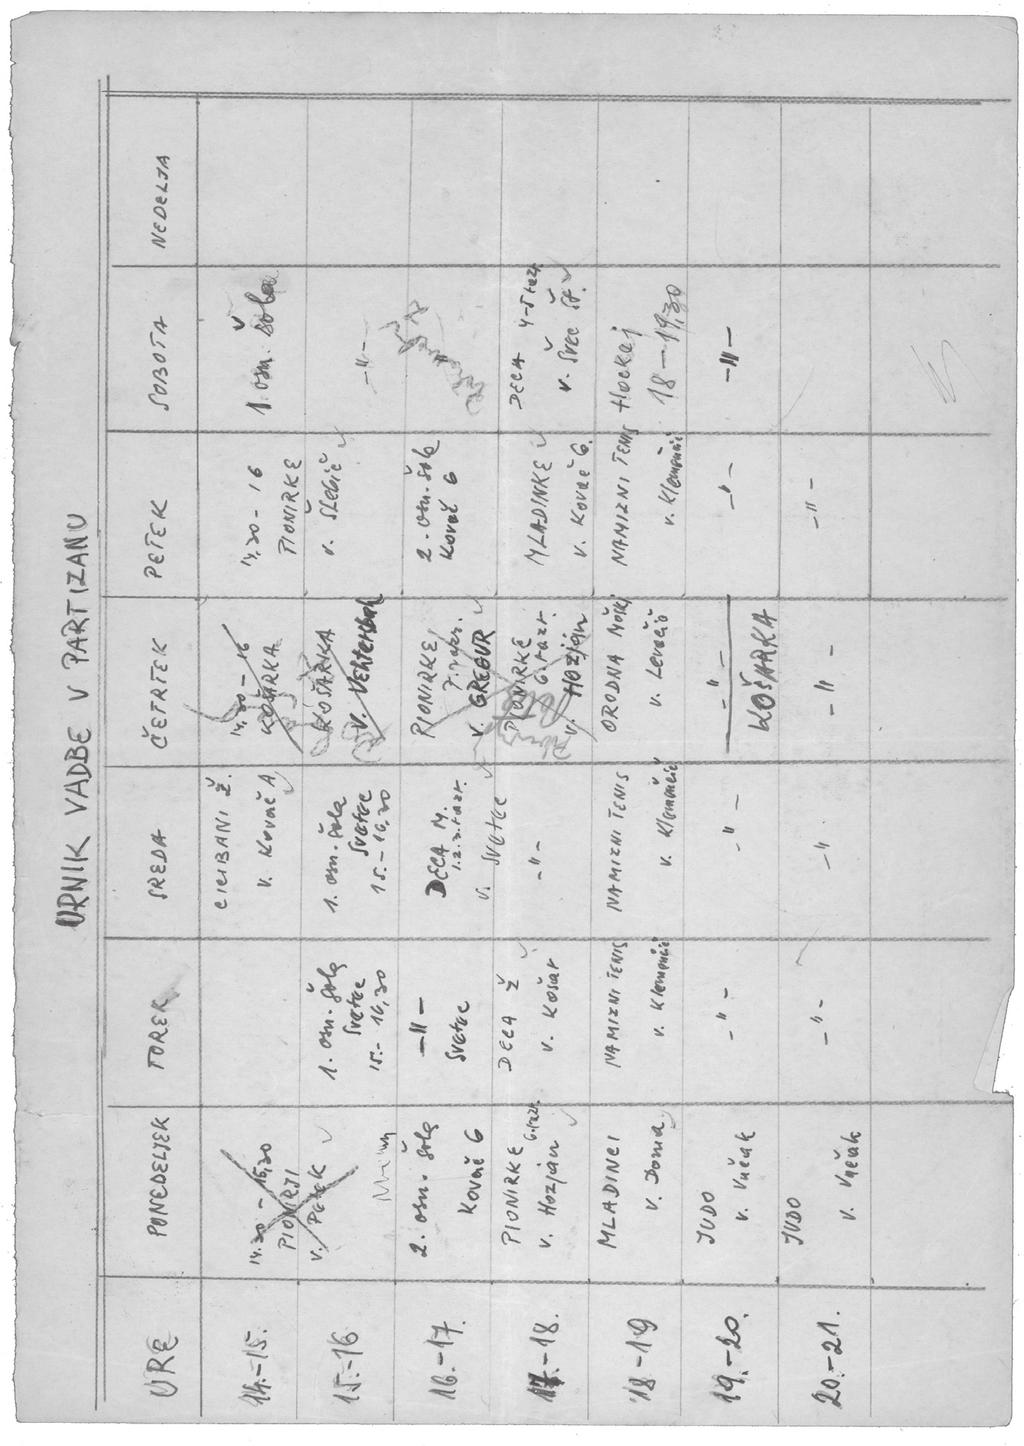 URNIK VADBE V PARTIZANU
URE PONEDELJEK TOREK SREDA ČETRTEK PETEK SOBOTA NEDELJA
14.-15.
14.30 - 15,30
PIONIRJI
CICIBANI Ž.
v. Kovač A
14.30 - 16
KOŠARKA
14.30 - 16
PIONIRKE
1. osn. šola
15.-16
v. Petek
1. osn. šola
Svetec
15.- 16,30
1. osn. šola
Svetec
15.- 16,30
KOŠARKA
v.
v. SLEBIČ
-"-
16.-17.
2. osn. šola
Kovač G
-"-
Svetec
DECA M.
1.2.3. razr.
v. Svetec
PIONIRKE
7. razr.
v. GREGUR
2. osn. šola
Kovač G
17.-18.
PIONIRKE 6. razr.
v. Hozjan
DECA Ž
v. Košar
-"-
PIONIRKE
6. razr.
v. Hozjan
MLADINKE
v. Kovač G.
DECA 4-5 razr.
v. Švec Št.
18-19
MLADINCI
v. Doma
NAMIZNI TENIS
v. Klemenčič
NAMIZNI TENIS
v. Klemenčič
ORODNA
v. Levačič
NAMIZNI TENIS
v. Klemenčič
Hockej
18-19,30
19.-20.
JUDO
v. Vučak
-"-
-"-
-"-
KOŠARKA
-"-
-"-
20.-21.
JUDO
v. Vučak
-"-
-"-
-"-
-"-